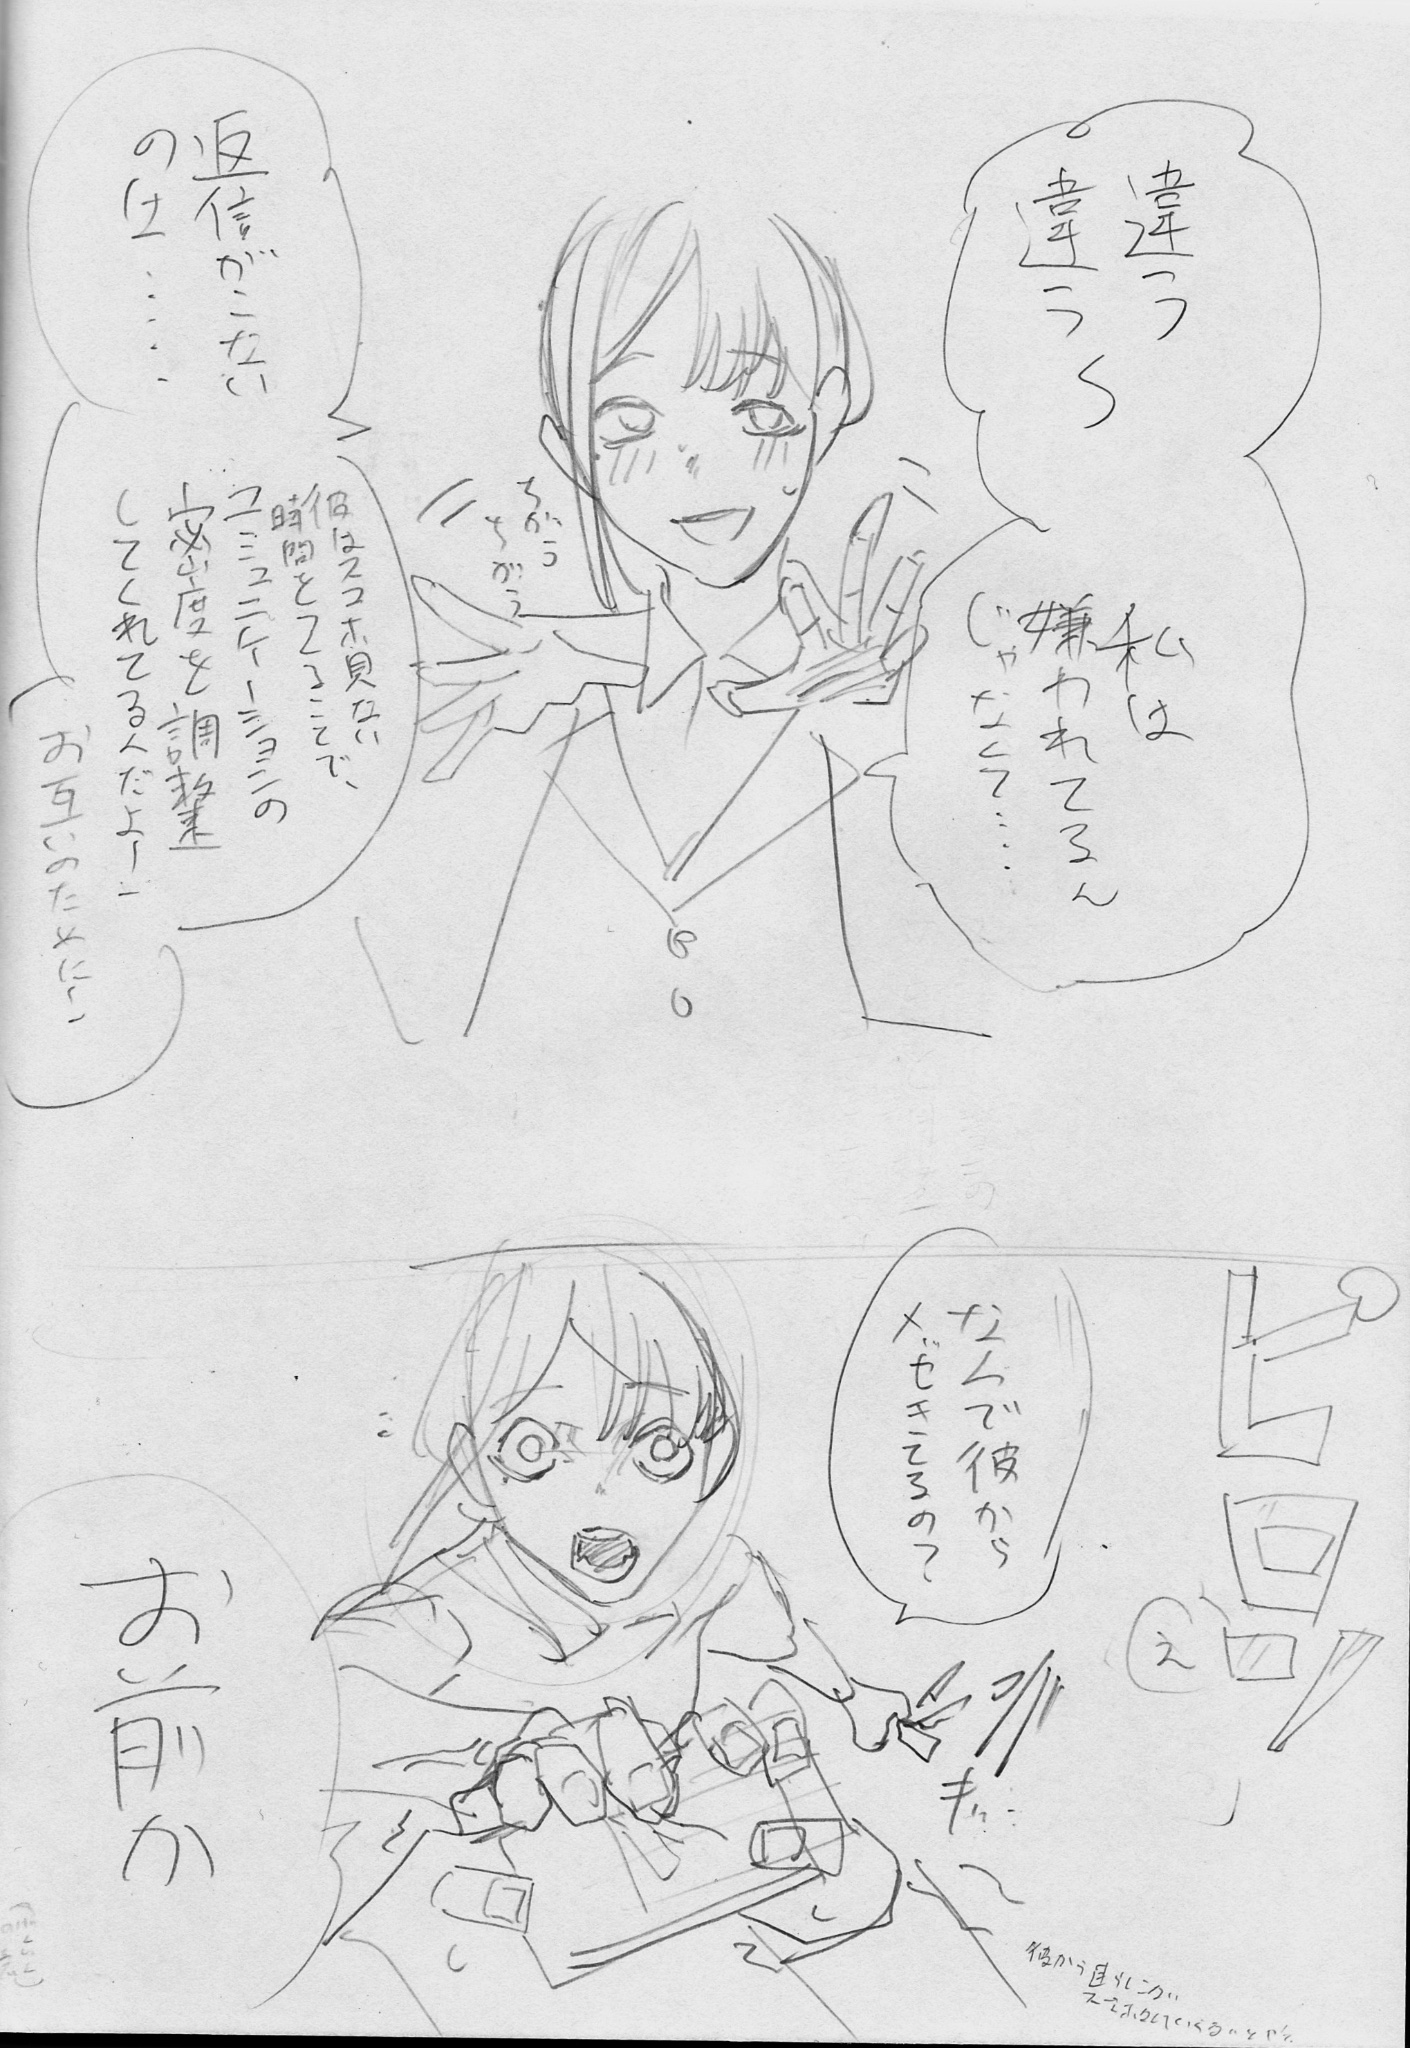 違う
違う〜
私は
嫌われてるん
じゃなくて……
ちがう
ちがう
返信がこない
のは……
彼はスマホ見ない
時間とってることで、
コミュニケーションの
密度を調整
してくれてるんだよー
お互いのために
ピロリ
え
なんで彼から
メッセきてるの？
ギッ…
お前か
彼から